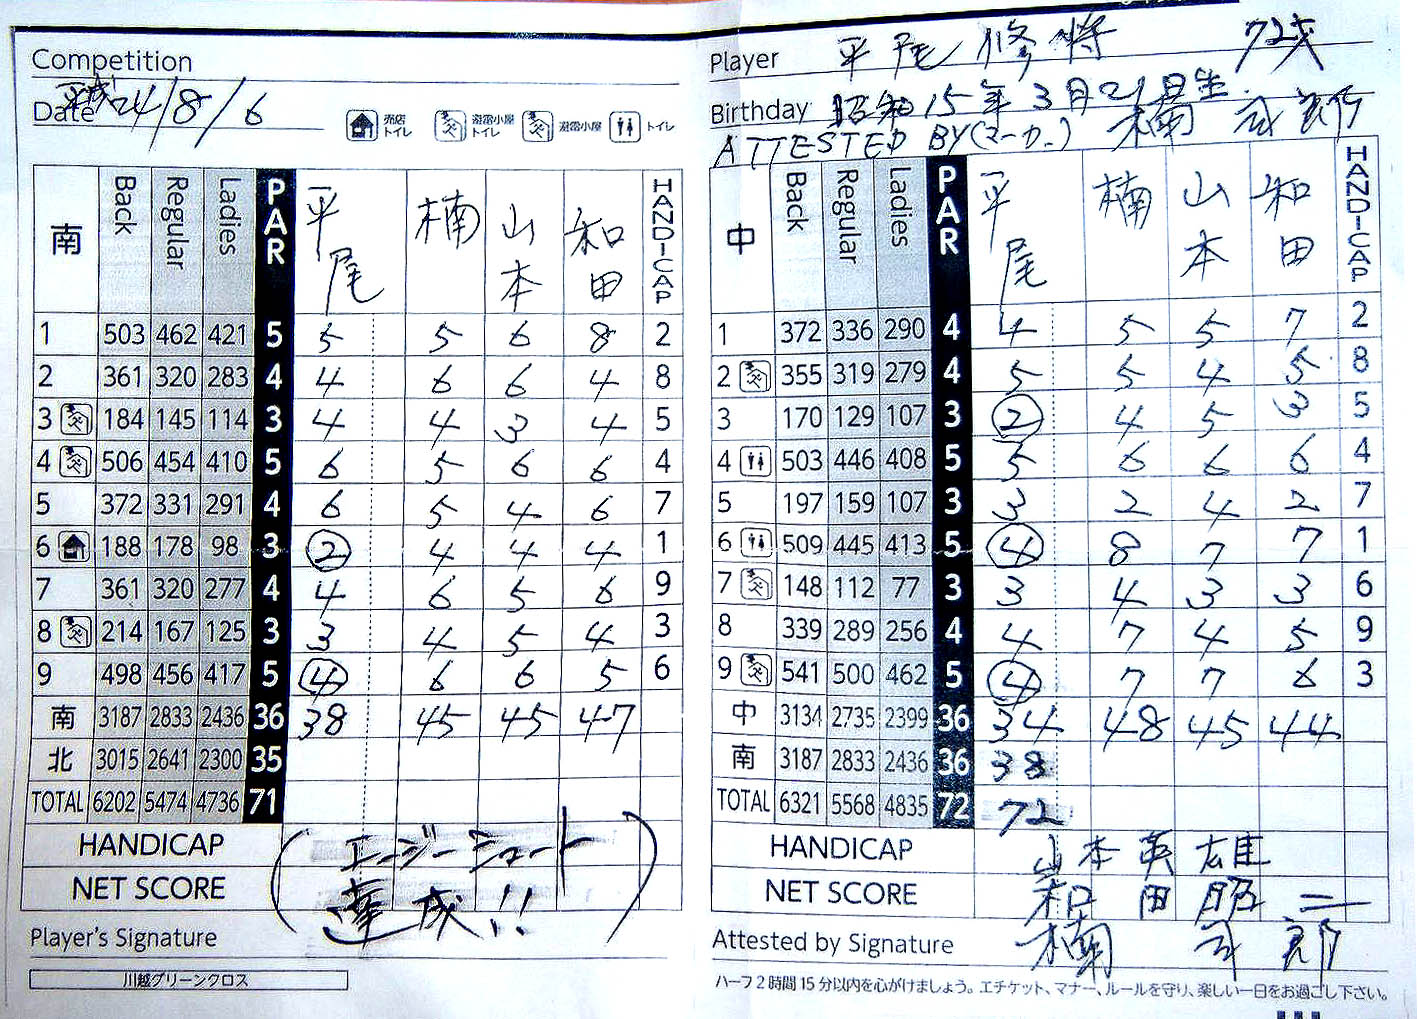 Competition
Date 平成24/8/6
売店トイレ 避雷小屋トイレ 避雷小屋 トイレ
南 Back Regular Ladies PAR 平尾 楠 山本 和田 HANDICAP
1 503 462 421 5 5 5 6 8 2
2 361 320 283 4 4 6 6 4 8
3 184 145 114 3 4 4 3 4 5
4 506 454 410 5 6 5 6 6 4
5 372 331 291 4 6 5 4 6 7
6 188 178 98 3 2 4 4 4 1
7 361 320 277 4 4 6 5 6 9
8 214 167 125 3 3 4 5 4 3
9 498 456 417 5 4 6 6 5 6
南 3187 2833 2436 36 38 45 45 47
北 3015 2641 2300 35
TOTAL 6202 5474 4736 71
HANDICAP (エージーシュート
NET SCORE 達成!!)
Player's Signature
川越グリーンクロス
Player 平尾 修将 72才
Birthday 昭和15年3月21日生
ATTESTED BY(マーカー) 楠 司郎
中 Back Regular Ladies PAR 平尾 楠 山本 和田 HANDICAP
1 372 336 290 4 4 5 5 7 2
2 355 319 279 4 5 5 4 5 8
3 170 129 107 3 2 4 5 3 5
4 503 446 408 5 5 6 6 6 4
5 197 159 107 3 3 2 4 2 7
6 509 445 413 5 4 8 7 7 1
7 148 112 77 3 3 4 3 3 6
8 339 289 256 4 4 7 4 5 9
9 541 500 462 5 4 7 7 6 3
中 3134 2735 2399 36 34 48 45 44
南 3187 2833 2436 36 38
TOTAL 6321 5568 4835 72 72
HANDICAP 山本英雄
NET SCORE 和田昭二
Attested by Signature 楠 司郎
ハーフ2時間15分以内を心がけましょう。エチケット、マナー、ルールを守り、楽しい一日をお過ごし下さい。